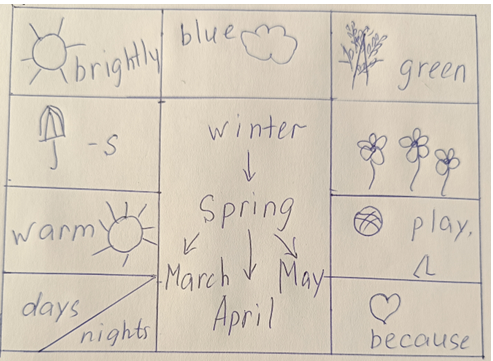 brightly
blue
green
-s
winter
Spring
March
May
April
warm
play,
days
nights
because